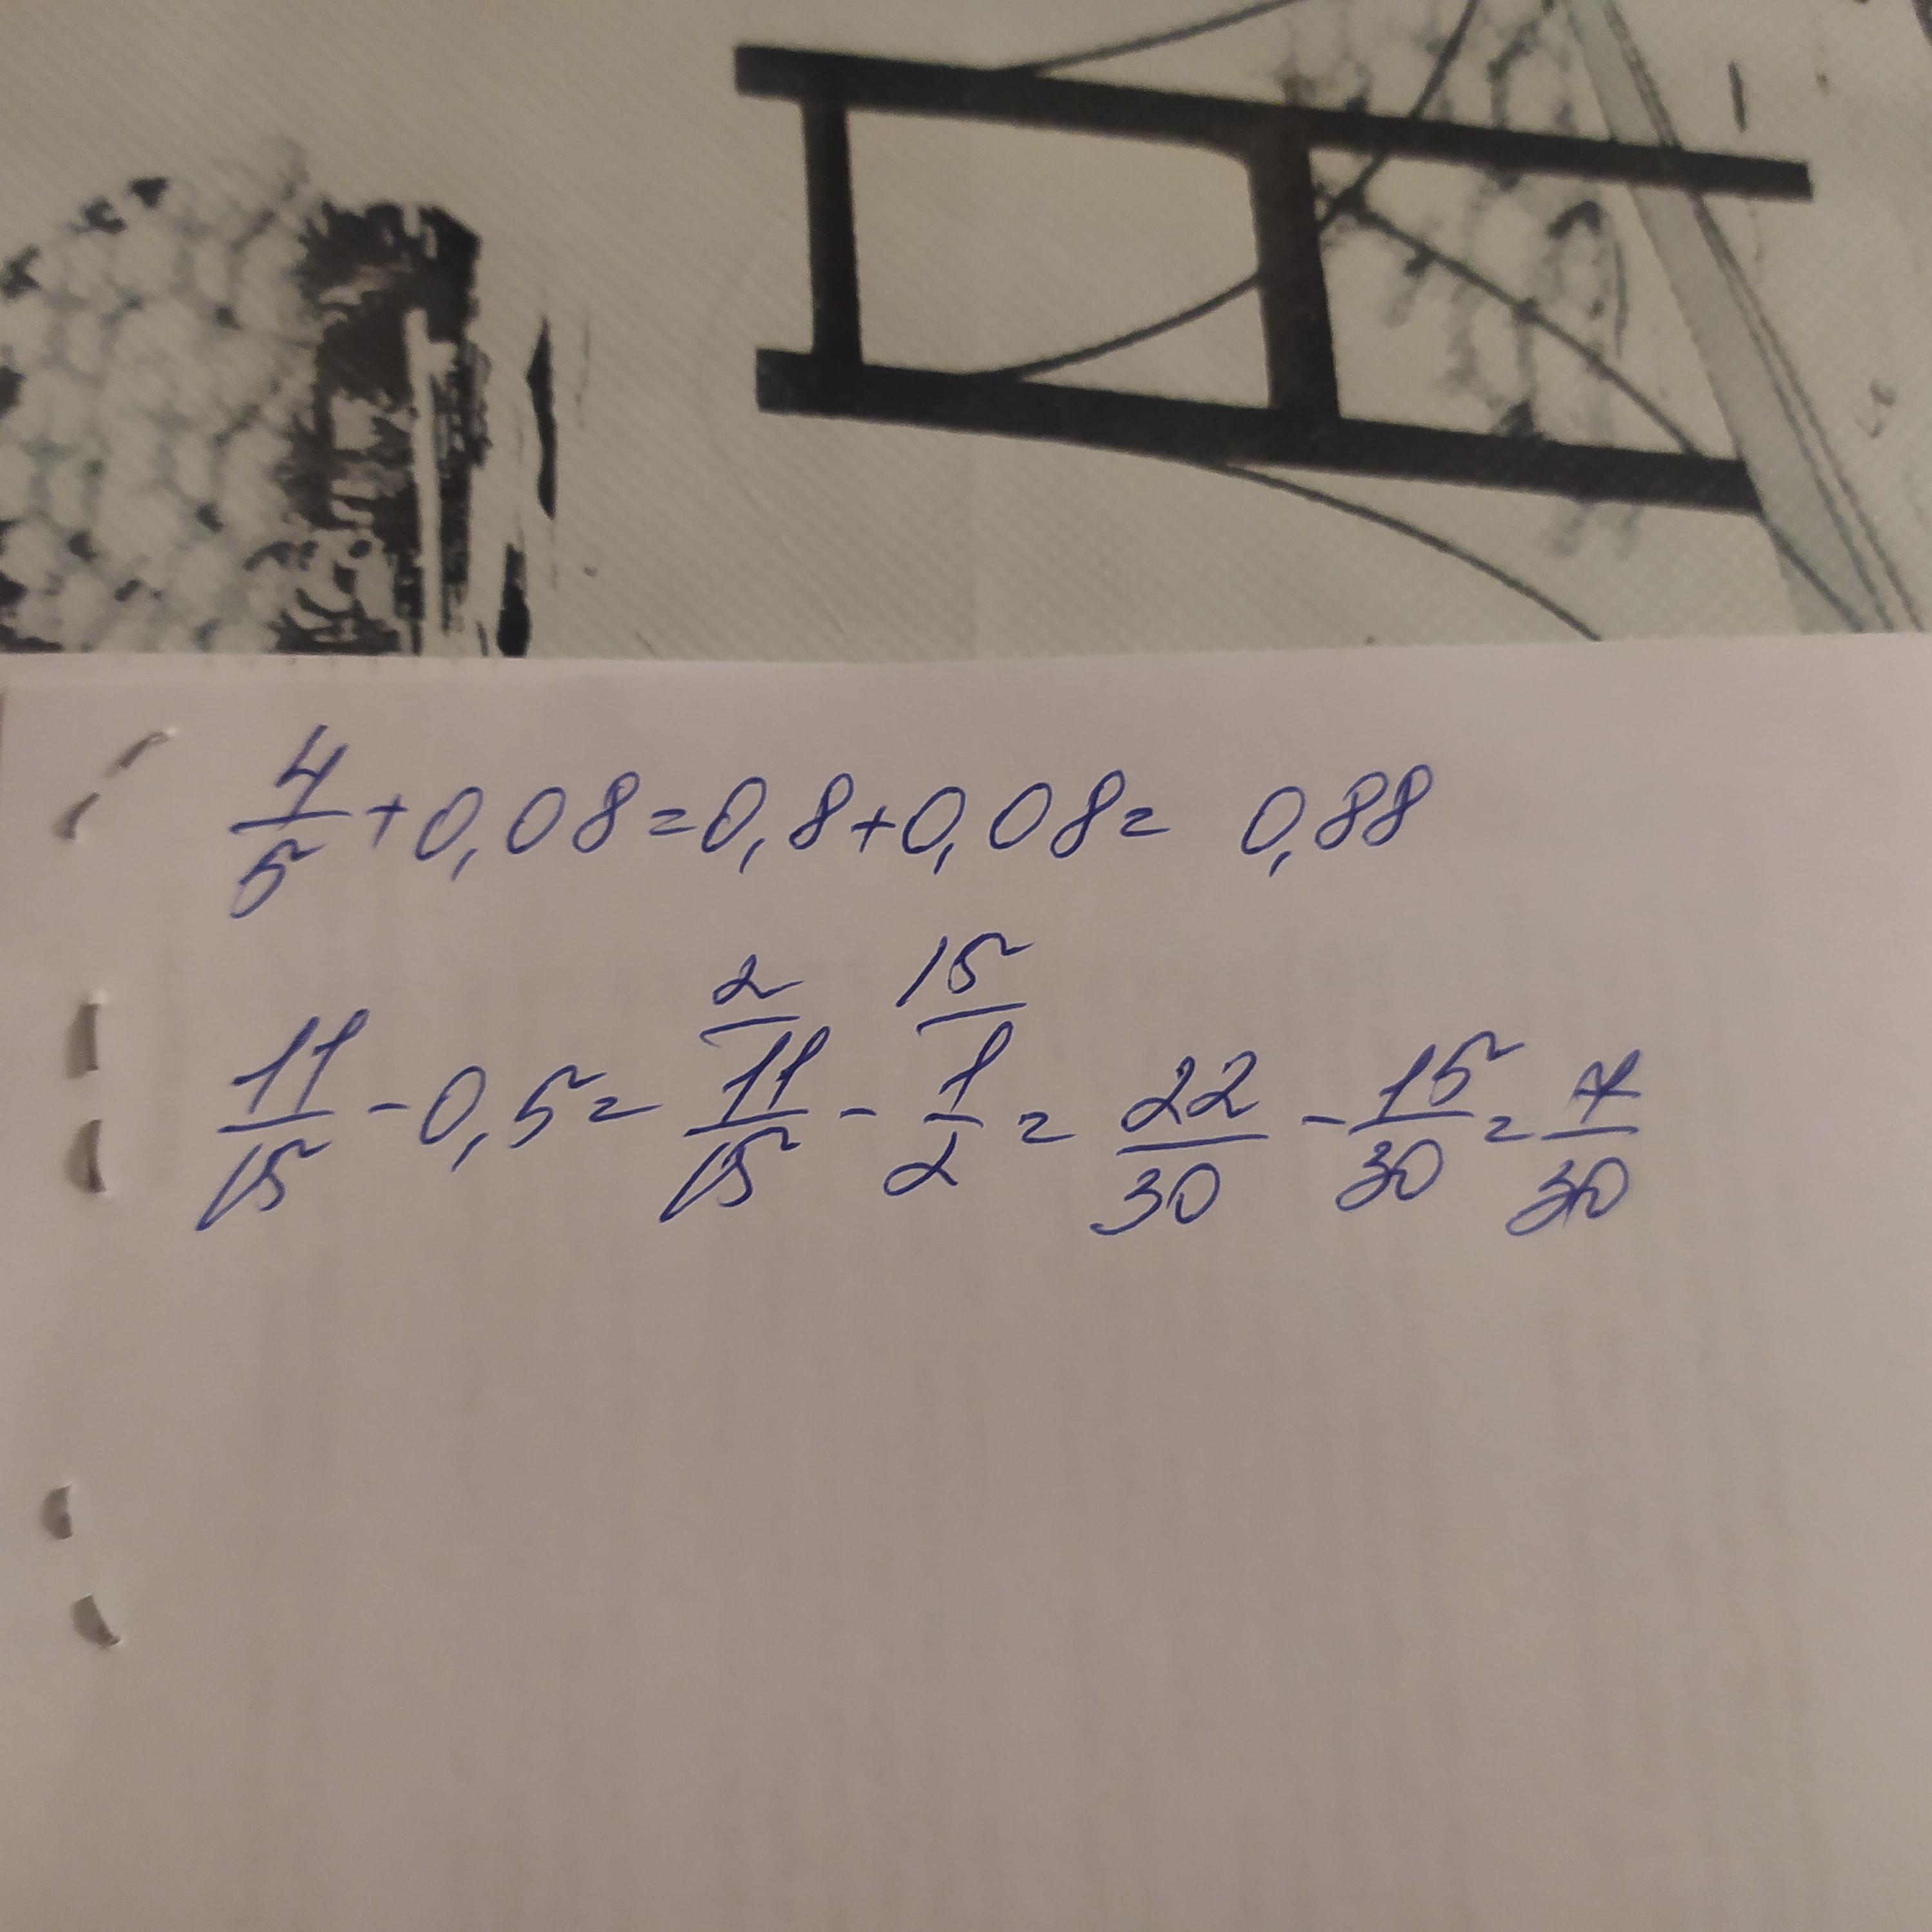 4/5 + 0,08 = 0,8 + 0,08 = 0,88
2 15
11/15 - 0,5 = 11/15 - 1/2 = 22/30 - 15/30 = 7/30